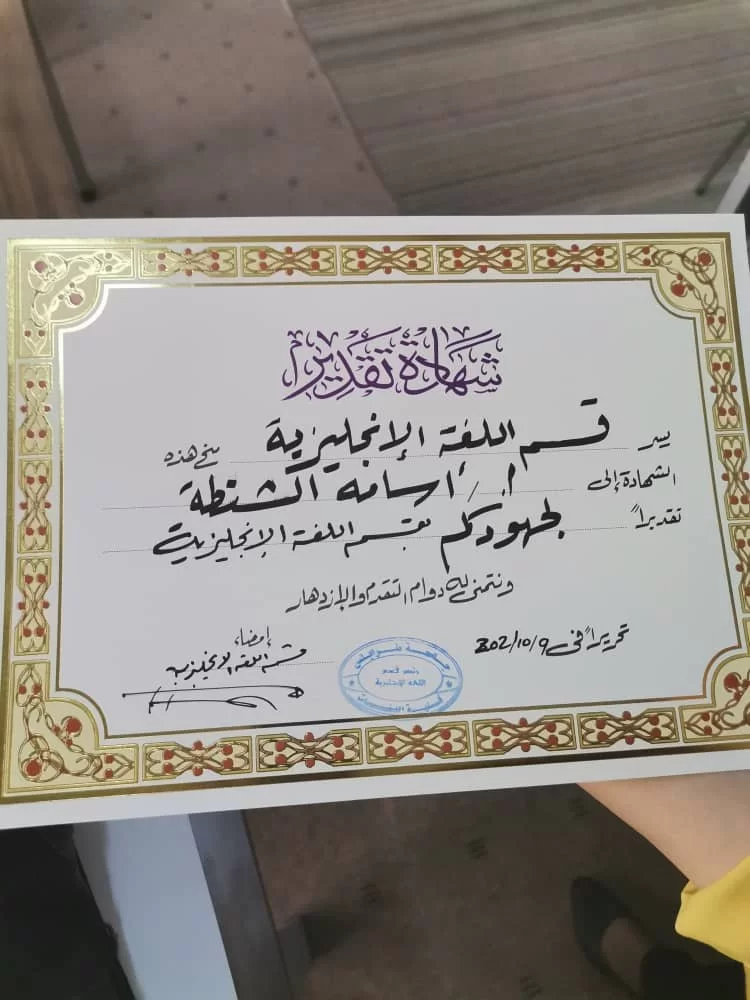 شهادة تقدير
يسر قسم اللغة الإنجليزية منح هذه
الشهادة إلى أ. أسامة الشنطة
تقديراً لجهودكم بقسم اللغة الإنجليزية
ونتمنى له دوام التقدم والإزدهار
تحريراً في 202/10/9
إمضاء
قسم اللغة الإنجليزية
جامعة طرابلس
رئيس قسم
اللغة الإنجليزية
كلية اللغات